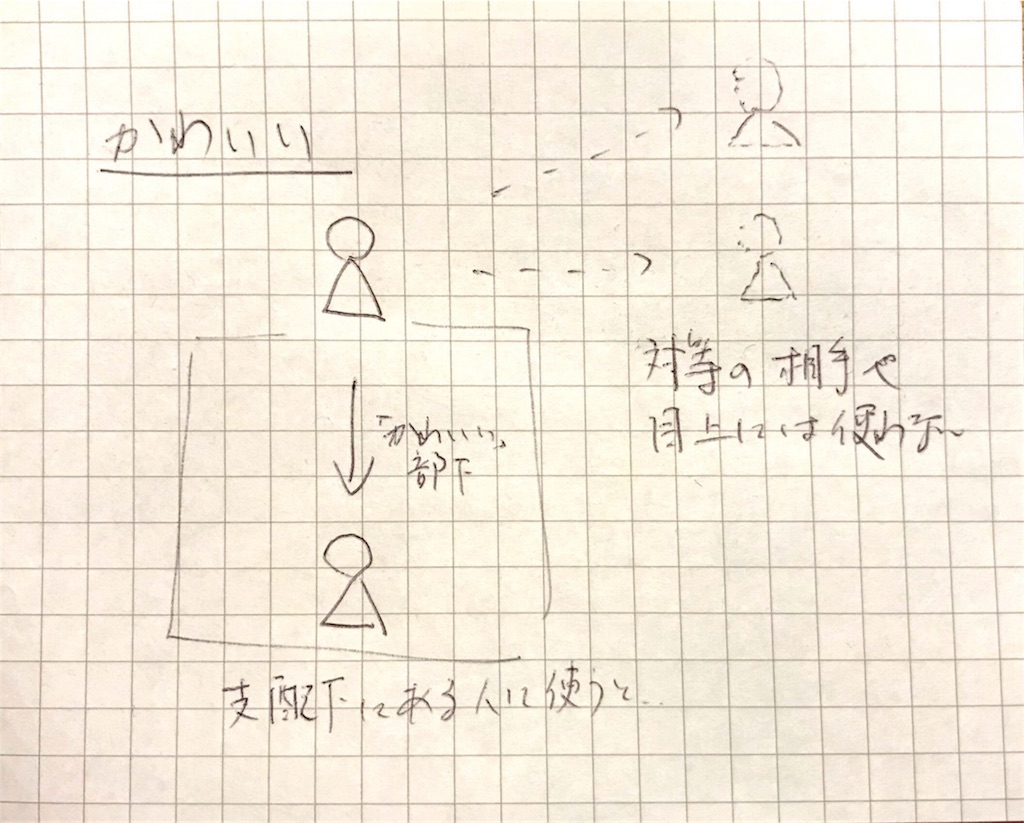 かわいい
対等の相手や
目上には使わない
「かわいい」
部下
支配下にある人に使うと...